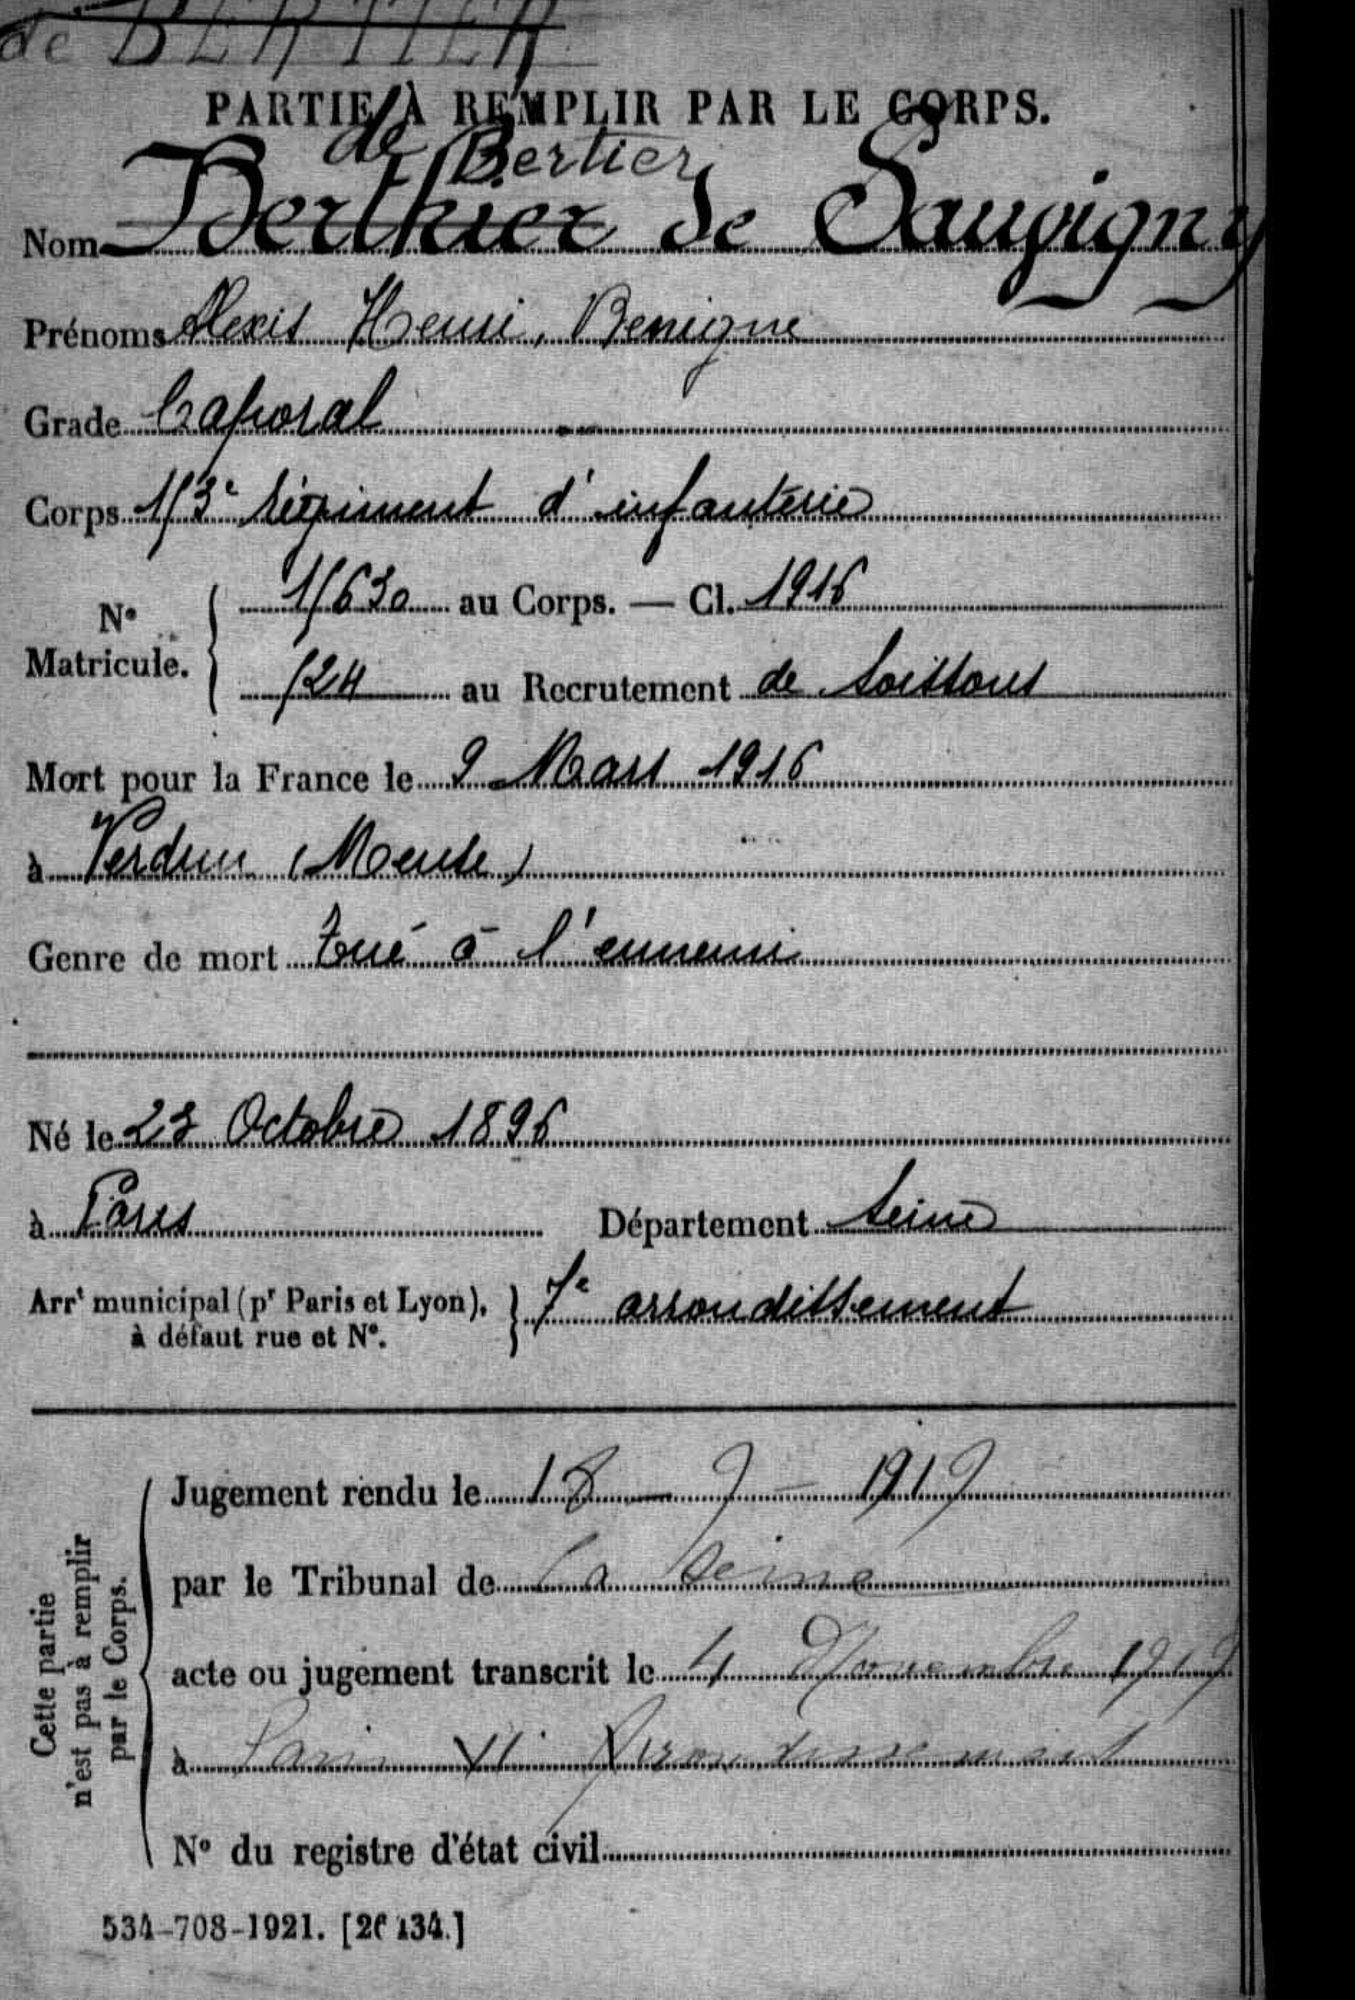 de BERTIER
PARTIE À REMPLIR PAR LE CORPS.
de Bertier
Nom Berthier de Sauvigny
Prénoms Alexis Henri, Benigne
Grade Caporal
Corps 153e régiment d'infanterie
No Matricule. 15630 au Corps. — Cl. 1916
524 au Recrutement de Soissons
Mort pour la France le 9 Mars 1916
à Verdun (Meuse)
Genre de mort Tué à l'ennemi
Né le 23 Octobre 1896
à Paris Département Seine
Arrt municipal (pr Paris et Lyon), 7e arrondissement
à défaut rue et No.
Cette partie
n'est pas à remplir
par le Corps.
Jugement rendu le 18 - 7 - 1919
par le Tribunal de la Seine
acte ou jugement transcrit le 4 Novembre 1919
à Paris VIe Arrondissement
No du registre d'état civil
534-708-1921. [26434.]